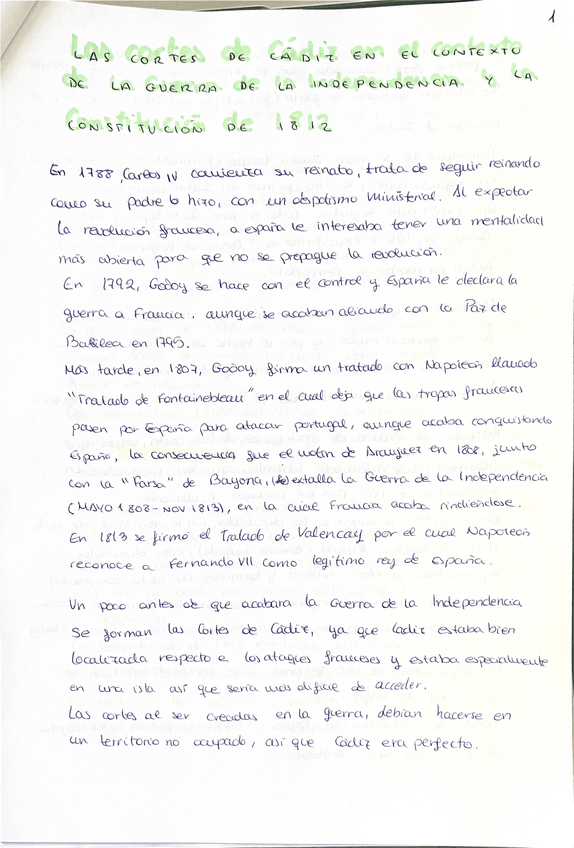 1
LAS CORTES DE CÁDIZ EN EL CONTEXTO
DE LA GUERRA DE LA INDEPENDENCIA Y LA
CONSTITUCIÓN DE 1812
En 1788, Carlos IV comienza su reinato, trata de seguir reinando
como su padre lo hizo, con un despotismo ministerial. Al explotar
la revolución francesa, a españa le interesaba tener una mentalidad
más abierta para que no se propague la revolución.
En 1792, Godoy se hace con el control y España le declara la
guerra a Francia. aunque se acaban aliando con la Paz de
Basilea en 1795.
Más tarde, en 1807, Godoy firma un tratado con Napoleón llamado
"Tratado de Fontainebleau" en el cual deja que las tropas francesas
pasen por España para atacar portugal, aunque acaba conquistando
España, la consecuencia fue el motín de Aranjuez en 1808, junto
con la "Farsa" de Bayona, estalla la Guerra de la Independencia
(MAYO 1808-NOV 1813), en la cual Francia acaba rindiéndose.
En 1813 se firmó el Tratado de Valencay por el cual Napoleón
reconoce a Fernando VII como legítimo rey de españa.
Un poco antes de que acabara la Guerra de la Independencia
se forman las Cortes de Cádiz, ya que Cádiz estaba bien
localizada respecto a los ataques franceses y estaba especialmente
en una isla así que sería más difícil de acceder.
Las cortes al ser creadas en la guerra, debían hacerse en
un territorio no ocupado, así que Cádiz era perfecto.